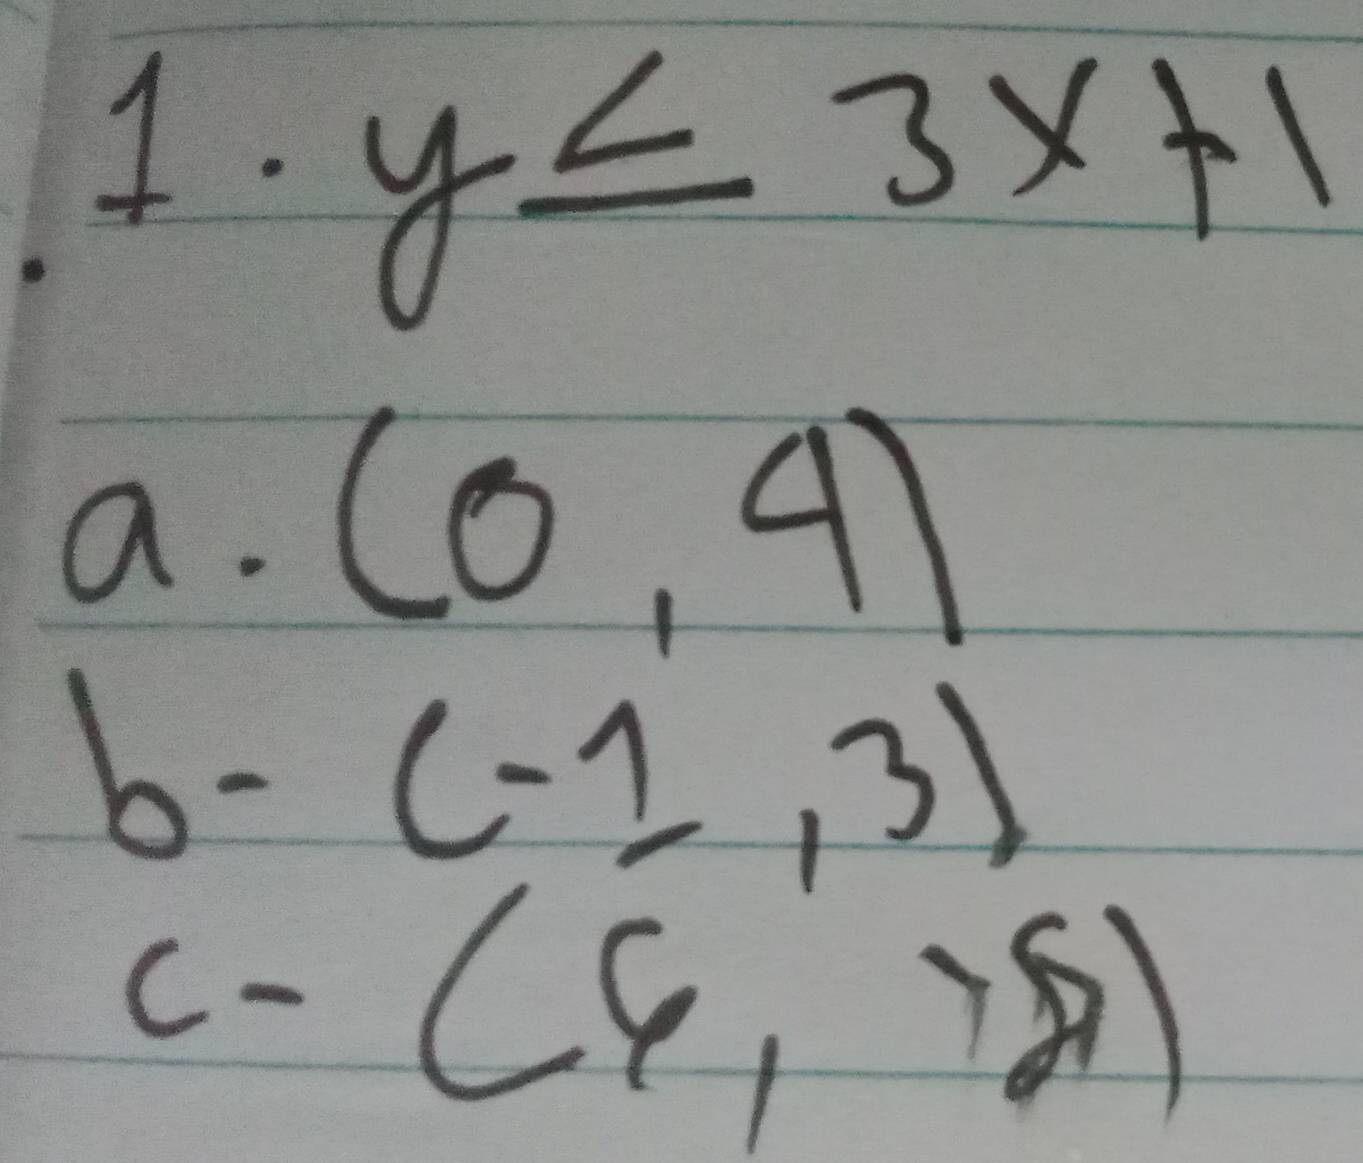 1. y ≤ 3x+1
a. (0, 4)
b- (-1, 3)
c- (